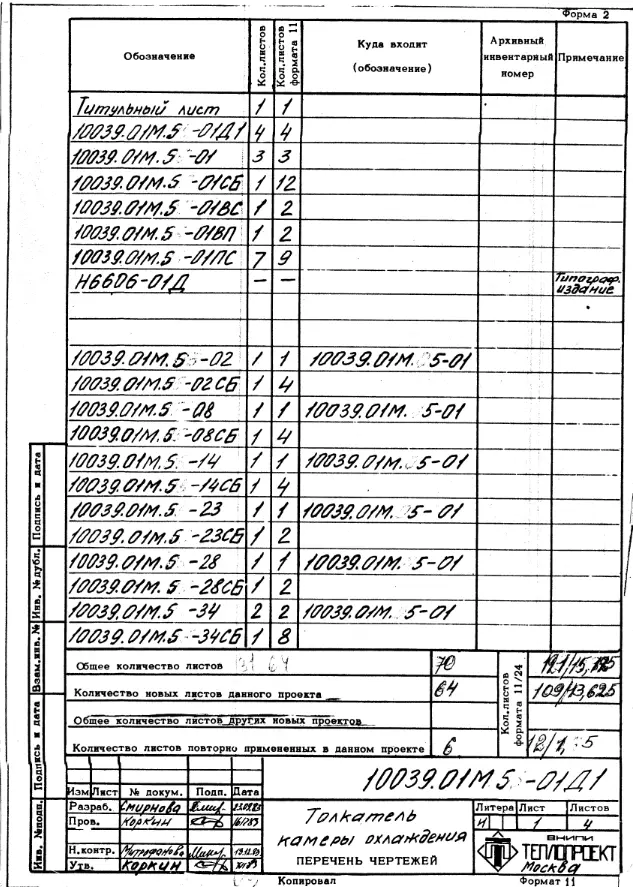 Форма 2
Обозначение
Кол.листов
Кол.листов формата 11
Куда входит
(обозначение)
Архивный инвентарный номер
Примечание
Титульный лист 1 1
10039.01М.5 -01Д1 4 4
10039.01М.5 -01 3 3
10039.01М.5 -01СБ 1 12
10039.01М.5 -01ВС 1 2
10039.01М.5 -01ВП 1 2
10039.01М.5 -01ПС 7 9
Н6606-01Д — — Типограф. издание
10039.01М.5 -02 1 1 10039.01М. 5-01
10039.01М.5 -02СБ 1 4
10039.01М.5 -08 1 1 10039.01М. 5-01
10039.01М.5 -08СБ 1 4
10039.01М.5 -14 1 1 10039.01М. 5-01
10039.01М.5 -14СБ 1 4
10039.01М.5 -23 1 1 10039.01М. 5-01
10039.01М.5 -23СБ 1 2
10039.01М.5 -28 1 1 10039.01М. 5-01
10039.01М.5 -28СБ 1 2
10039.01М.5 -34 2 2 10039.01М. 5-01
10039.01М.5 -34СБ 1 8
Общее количество листов 70
Количество новых листов данного проекта 64 109/13,625
Общее количество листов других новых проектов
Количество листов повторно примененных в данном проекте 6
Кол.листов формата 11/24
Подпись и дата
Инв. № дубл.
Взам.инв. №
Подпись и дата
Инв. №подл.
10039.01М5 -01Д1
Изм Лист № докум. Подп. Дата
Разраб. Смирнова
Пров. Коркин
Н.контр. Митрофанова
Утв. Коркин
Толкатель
камеры охлаждения
ПЕРЕЧЕНЬ ЧЕРТЕЖЕЙ
Литера Лист Листов
И 1 4
ВНИПИ
ТЕПЛОПРОЕКТ
Москва
Копировал
Формат 11